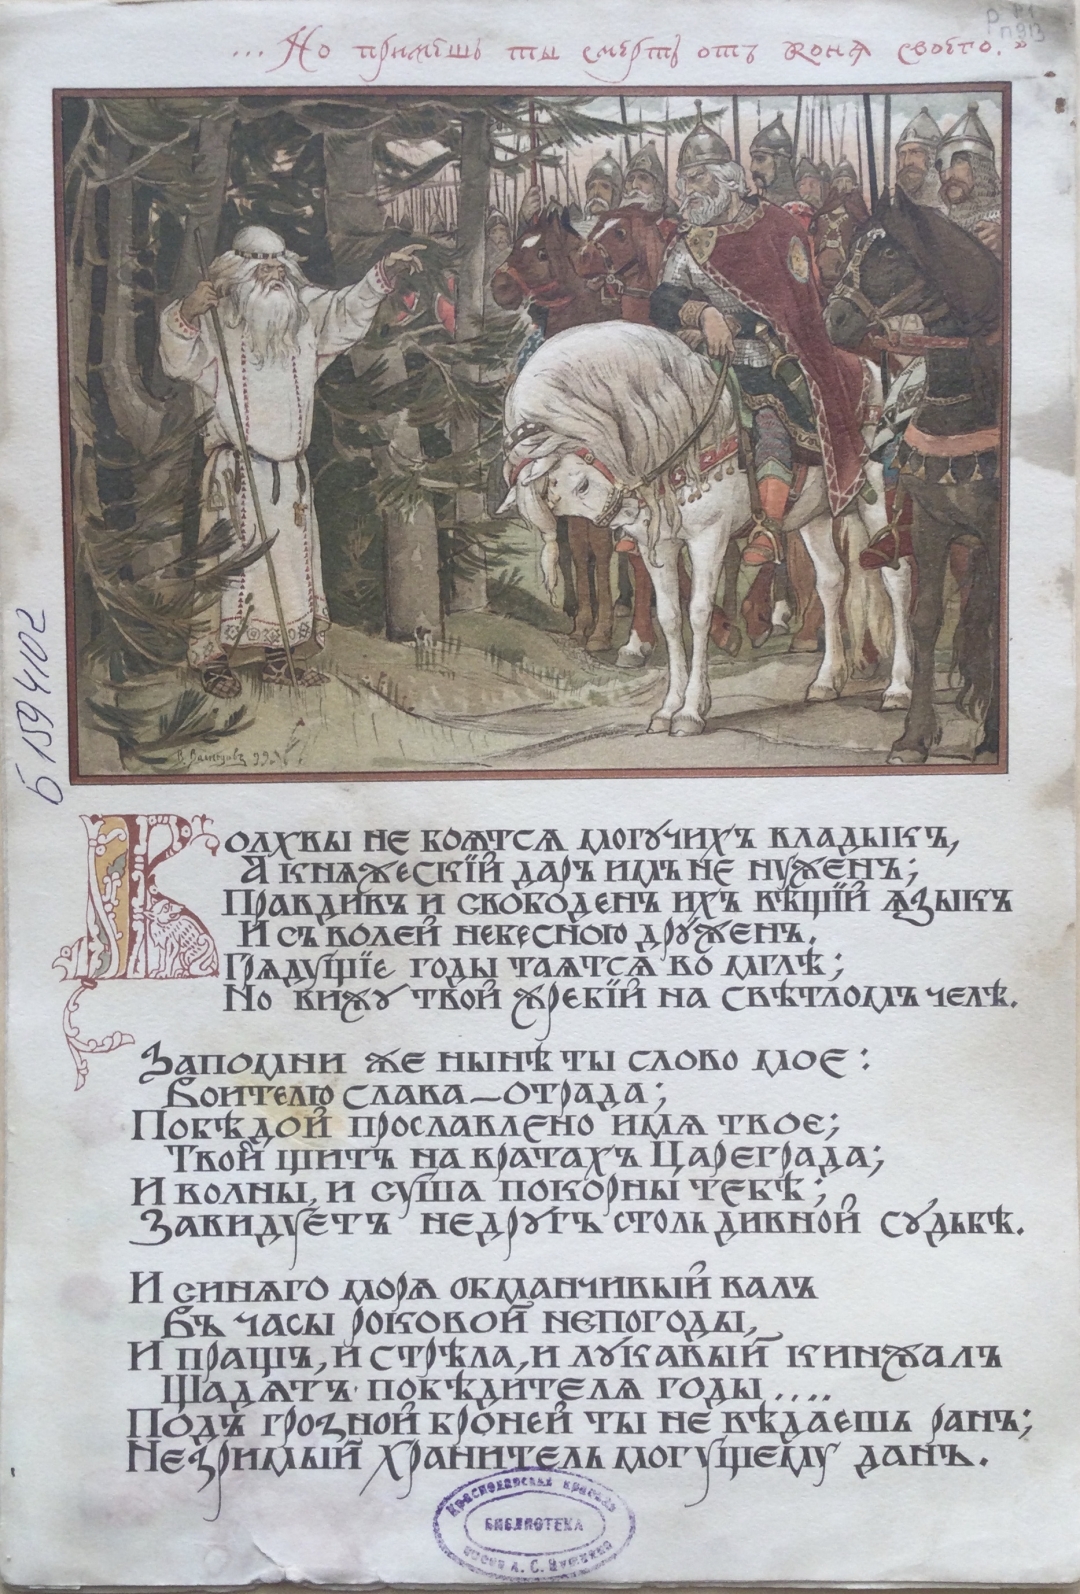 Р Р1
П913
... Но примешь ты смерть отъ коня своего.»
В. Васнецовъ 99
Б 1594102
Волхвы не боятся могучихъ владыкъ,
А княжескїй даръ имъ не нуженъ;
Правдивъ и свободенъ ихъ вѣщїй языкъ
И съ волей небесною друженъ.
Грядущїе годы таятся во мглѣ;
Но вижу твой жребїй на свѣтломъ челѣ.
Запомни же нынѣ ты слово мое:
Воителю слава—отрада;
Побѣдой прославлено имя твое;
Твой щитъ на вратахъ Цареграда;
И волны, и суша покорны тебѣ;
Завидуетъ недругъ столь дивной судьбѣ.
И синяго моря обманчивый валъ
Въ часы роковой непогоды,
И пращъ, и стрѣла, и лукавый кинжалъ
Щадятъ побѣдителя годы....
Подъ грозной броней ты не вѣдаешь ранъ;
Незримый хранитель могущему данъ.
Краснодарская краевая
БИБЛИОТЕКА
имени А. С. Пушкина